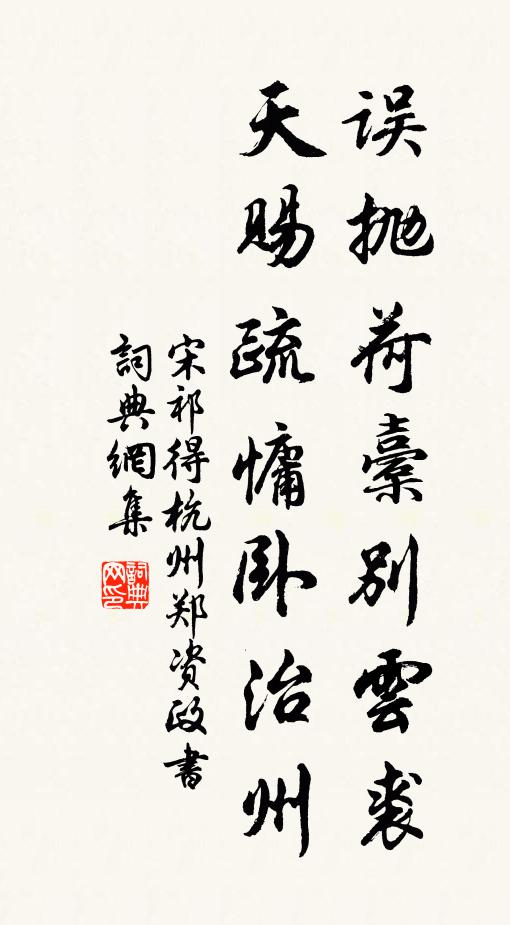 误抛荷橐别雲裘
天赐疏慵卧治州
宋祁得杭州郑资政書
詞典網集
詞典网印